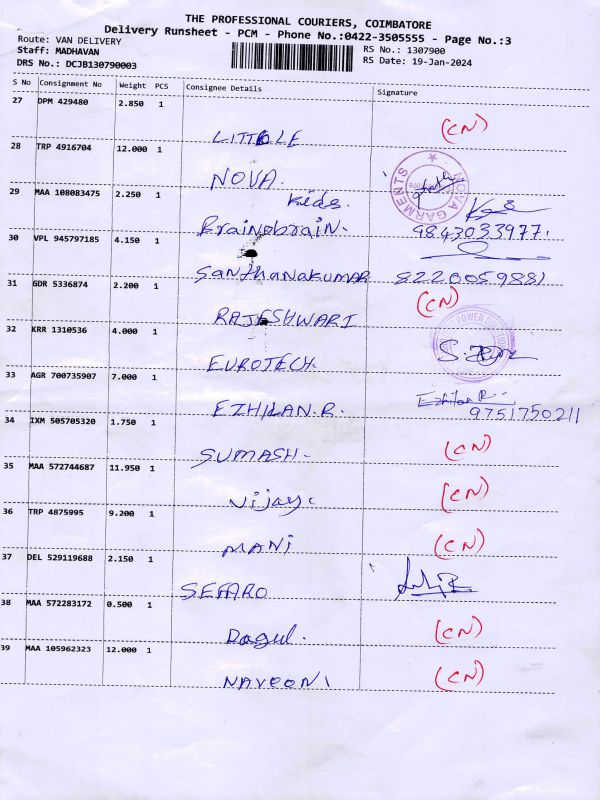 THE PROFESSIONAL COURIERS, COIMBATORE
Delivery Runsheet - PCM - Phone No.:0422-3505555 - Page No.:3
Route: VAN DELIVERY
Staff: MADHAVAN
DRS No.: DCJB130790003
RS No.: 1307900
RS Date: 19-Jan-2024
S No Consignment No Weight PCS Consignee Details Signature
27 DPM 429480 2.850 1
LITTLE (CN)
28 TRP 4916704 12.000 1
NOVA NOVA GARMENTS
29 MAA 108083475 2.250 1
Kids
Brainobrain. 9843033977
30 VPL 945797185 4.150 1
Santhanakumar 8220059881
31 GDR 5336874 2.200 1 (CN)
RAJESHWARI
32 KRR 1310536 4.000 1 POWER
EUROTECH.
33 AGR 700735907 7.000 1
EZHILAN.R. Ezhilan R
9751750211
34 IXM 505705320 1.750 1
SUMASH- (CN)
35 MAA 572744687 11.950 1
Vijay (CN)
36 TRP 4875995 9.200 1
MANI (CN)
37 DEL 529119688 2.150 1
SEFARO
38 MAA 572283172 0.500 1
Ragul. (CN)
39 MAA 105962323 12.000 1
NAVEONI (CN)